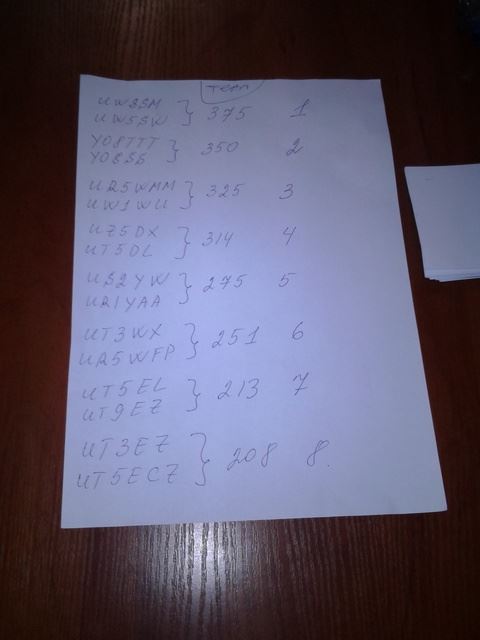 Team
UW8SM
UW5SW } 375 1
YO8TTT
YO8SS } 350 2
UR5WMM
UW1WU } 325 3
UZ5DX
UT5DL } 314 4
US2YW
UR1YAA } 275 5
UT3WX
UR5WFP } 251 6
UT5EL
UT9EZ } 213 7
UT3EZ
UT5ECZ } 208 8.